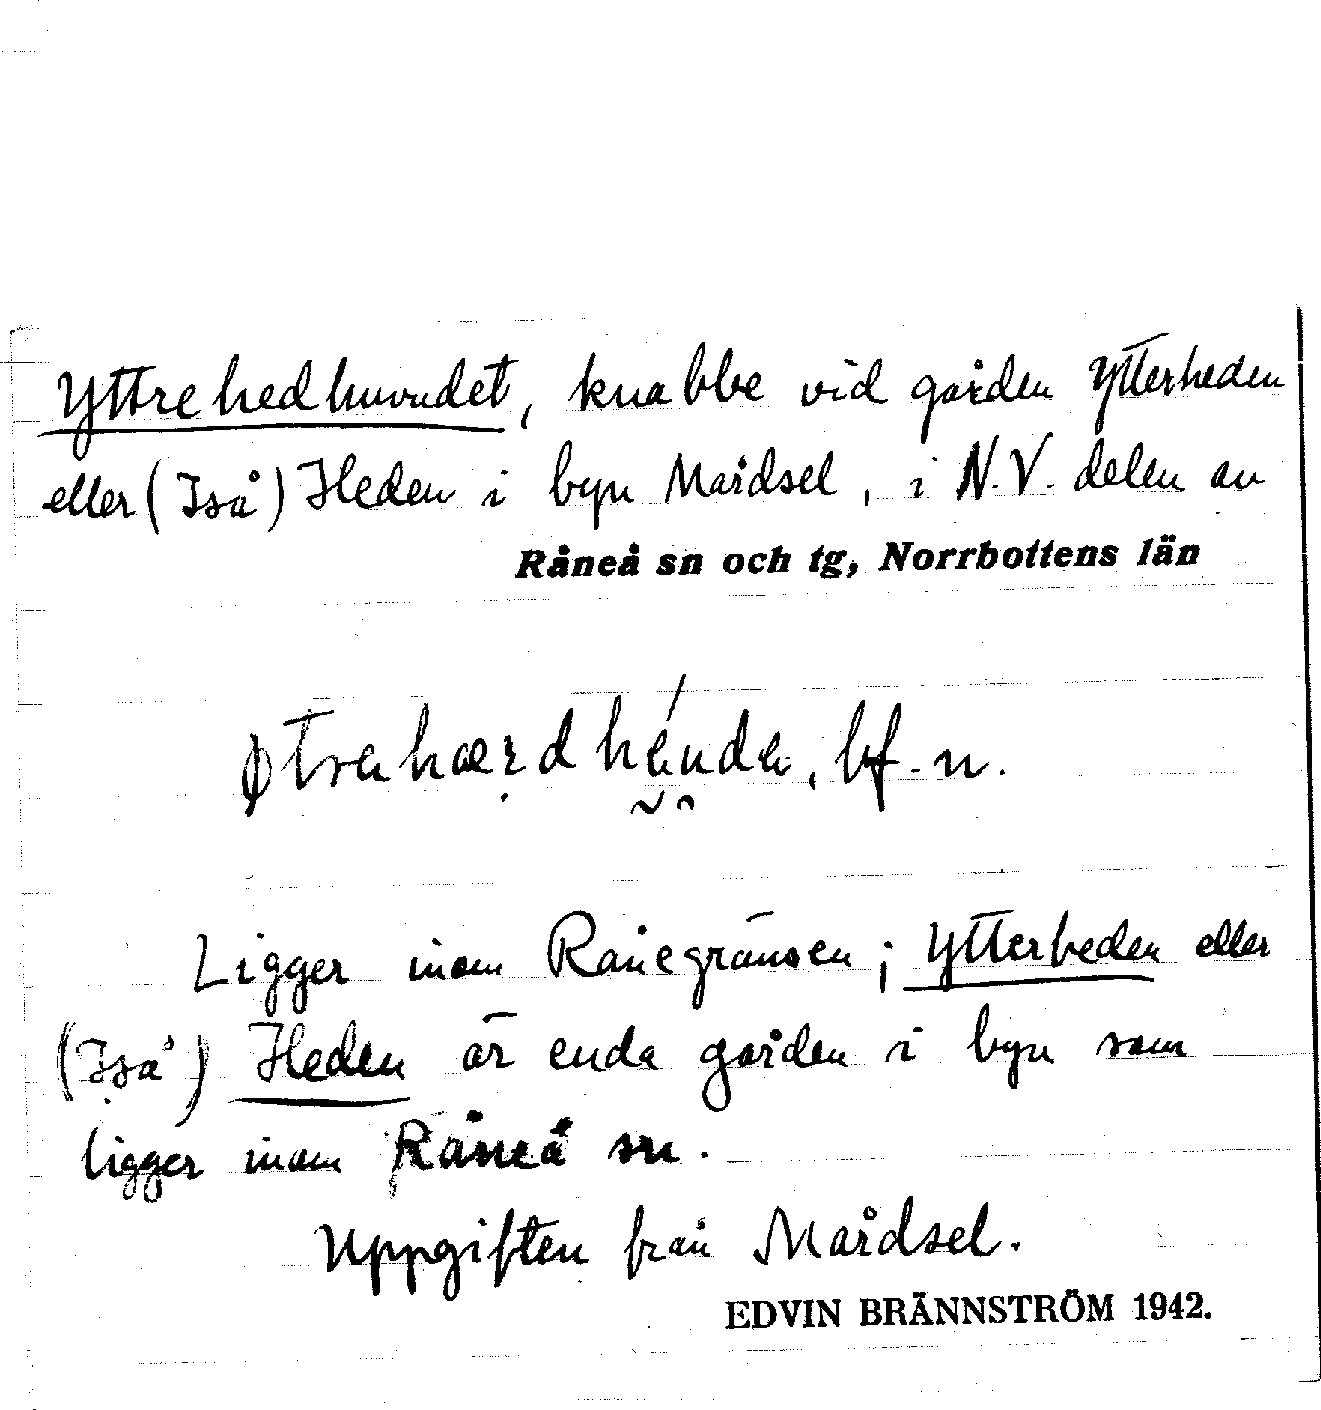 Yttrehedhuvudet, knabbe vid gården Ytterheden
eller (Iså) Heden i byn Mårdsel, i N.V. delen av
Råneå sn och tg, Norrbottens län
bf. n.
Ligger inom Rånegränsen; Ytterheden eller
(Iså) Heden är enda gården i byn som
ligger inom Råneå sn.
Uppgiften från Mårdsel.
EDVIN BRÄNNSTRÖM 1942.